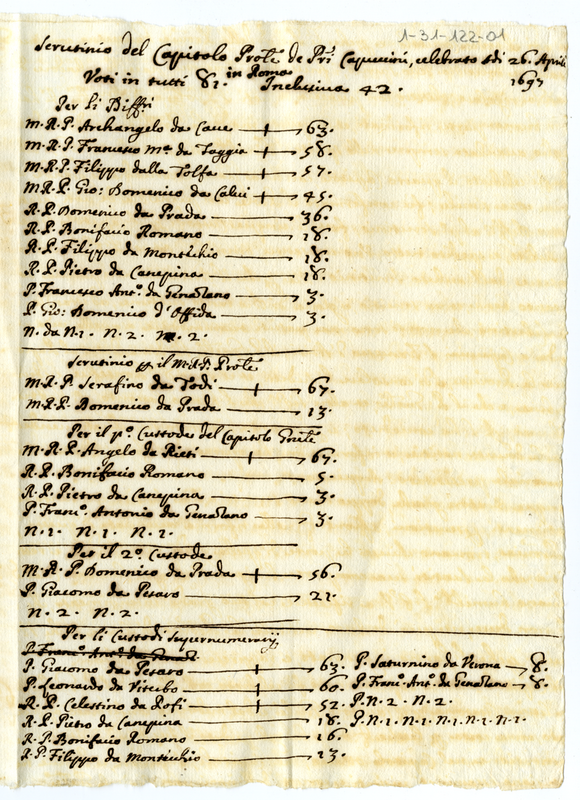 1-31-122-01
Scrutinio del Capitolo Prõle de Pri Capuccini, celebrato adi 26. Aprile
in Roma 1697
Voti in tutti 81. Inclusiva 42.
Per li Diffri
M.R.P. Archangelo da Caue 63.
M.R.P. Francesco Mª da Taggia 58.
M.R.P. Filippo dalla Tolfa 57.
M.R.P. Gio: Domenico da Calui 45.
R.P. Domenico da Prada 36.
R.P. Bonifacio Romano 18.
R.P. Filippo da Montichio 18.
R.P. Pietro da Canepina 18.
P. Francesco Antº da Genazano 3.
P. Gio: Domenico d'Offida 3.
N. da N.1. N.2. N.2.
Scrutinio p il M.R.P. Prõle
M.R.P. Serafino da Todi 67.
M.R.P. Domenico da Prada 13.
Per il pº Custode del Capitolo Gñale
M.R.P. Angelo da Rieti 67.
R.P. Bonifacio Romano 5.
R.P. Pietro da Canepina 3.
P. Francº Antonio da Genazano 3.
N.1. N.1. N.1.
Per il 2º Custode
M.R.P. Domenico da Prada 56.
P. Giacomo da Pesaro 21.
N.2. N.2.
Per li Custodi Supernumerarij
P. Francº Antº da Genaz.
P. Giacomo da Pesaro 63. P. Saturnino da Verona 8.
P. Leonardo da Viterbo 60. P. Francº Antº da Genazano 8.
R.P. Celestino da Rofi 52. P.N.2. N.2.
R.P. Pietro da Canepina 18. P.N.1. N.1. N.1. N.1. N.1.
R.P. Bonifacio Romano 16.
R.P. Filippo da Montichio 13.